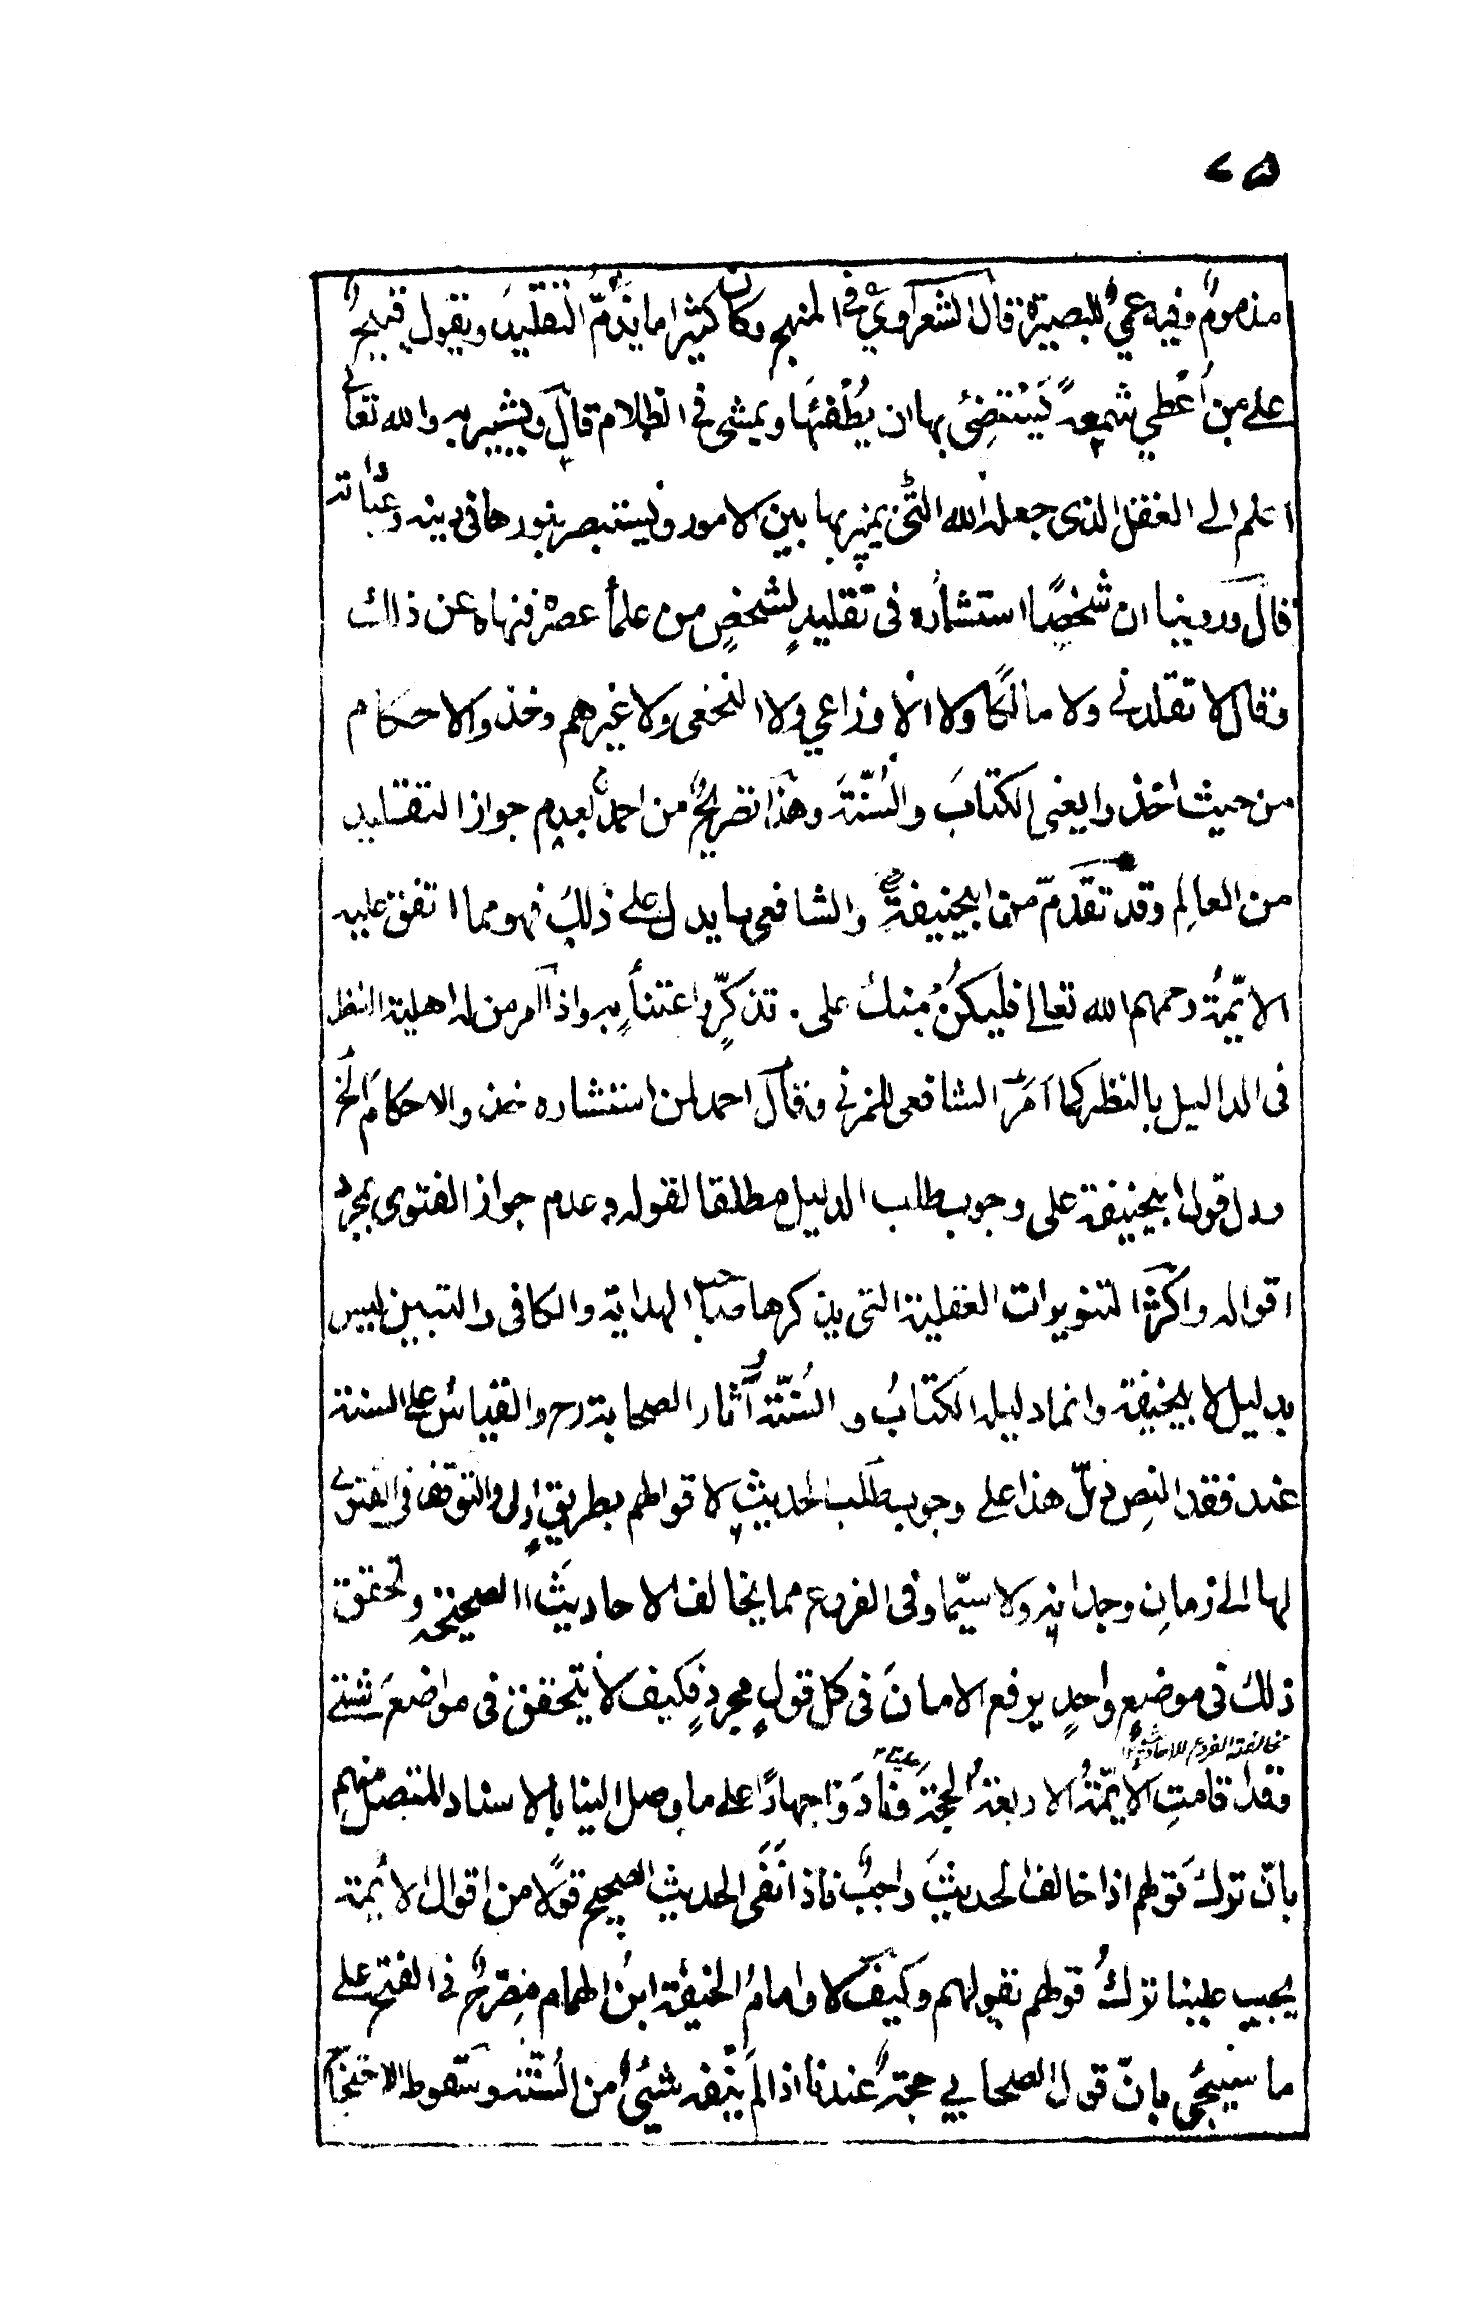 ۷۵
مذموم وفيه عمي للبصيرة قال الشعراوي في المنهج وكان كثيرا ما يذمّ التقليد ويقول قبيح
على من أعطي شمعة يستضئ بها ان يطفئها ويمشى في الظلام قال ويشير به والله تعالى
اعلم الى العقل الذى جعله الله التى يميز بها بين الامور ويستبصر بنورها فى دينه وعباداته
قال وروينا ان شخصًا استشاره فى تقليدِ لشخصٍ من علمأ عصره فنهاه عن ذالك
وقال لا تقلدنى ولا مالكا ولا الاوزاعي ولا النخعى ولا غيرهم وخذ والاحكام
من حيث اخذ وا يعنى الكتابَ والسُّنّةَ وهذا تصريحٌ من احمد بعدم جواز التقليد
من العالِم وقد تقدّم من ابيحنيفة والشافعى ما يدل على ذلك فهو مما اتفق عليه
الائمّة رحمهم الله تعالى فليكنْ منك على تذكّرٍ واعتنأٍ به واذا امر من له اهلية النظر
فى الداليل بالنظر كما اَمَرَ الشافعى للمزنى وقال احمد لمن استشاره خذ والاحكام الخ
ودل قول ابيحنيفة على وجوب طلب الدليل مطلقا لقوله وعدم جواز الفتوى بمجرد
اقواله واكثر التنويرات العقلية التى يذكرها صاحب الهداية والكافى والتبيين ليس
بدليل لا بيحنيفة وانما دليله الكتابُ و السُّنّة وآثار الصحابة رح والقياس على السنة
عند فقد النصِ دلّ هذا على وجوب طلب الحديثِ لاقوالهم بطريقٍ اولى والتوقف فى الفتوى
لها الى زمانِ وجدانه ولا سيّما وفى الفروع مما يخالف الاحاديثَ الصحيحة وتحقق
ذلك فى موضعٍ واحدٍ يرفع الامانَ فى كل قولٍ مجردٍ فكيف لا يتحقق فى مواضعَ شتى
مخالفة الفروع للاحاديث
فقد اقامتِ الائمّةُ الاربعة الحجة علينا ونادَوا جهارًا على ما وصل الينا بالاسناد المتصل منهم
بانّ ترك قولهم اذا خالف الحديثَ واجبٌ فاذا نفَى الحديث الصحيح قولا من اقوال الائمة
يجب علينا تركُ قولهم بقولهم وكيف لا وامامُ الحنيفة ابنُ الهمام مصّرحٌ فى الفتح على
ما سيجئ بانّ قول الصحابي حجةٌ عندنا اذا لم ينفه شيئٌ من السُّنّة وسقوط الاحتجاج